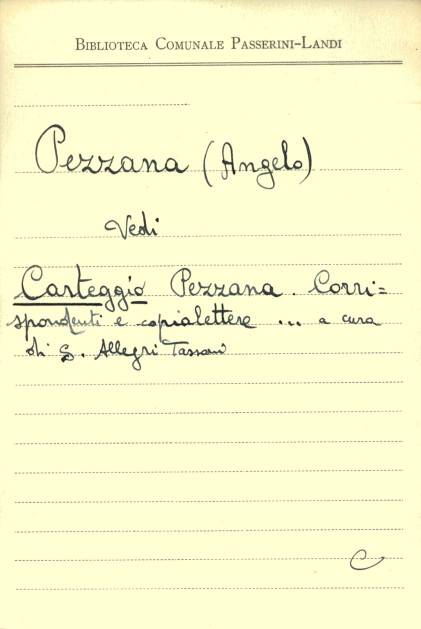 BIBLIOTECA COMUNALE PASSERINI-LANDI
Pezzana (Angelo)
Vedi
Carteggio Pezzana. Corri=
spondenti e copialettere ... a cura
di S. Allegri Tassoni
C